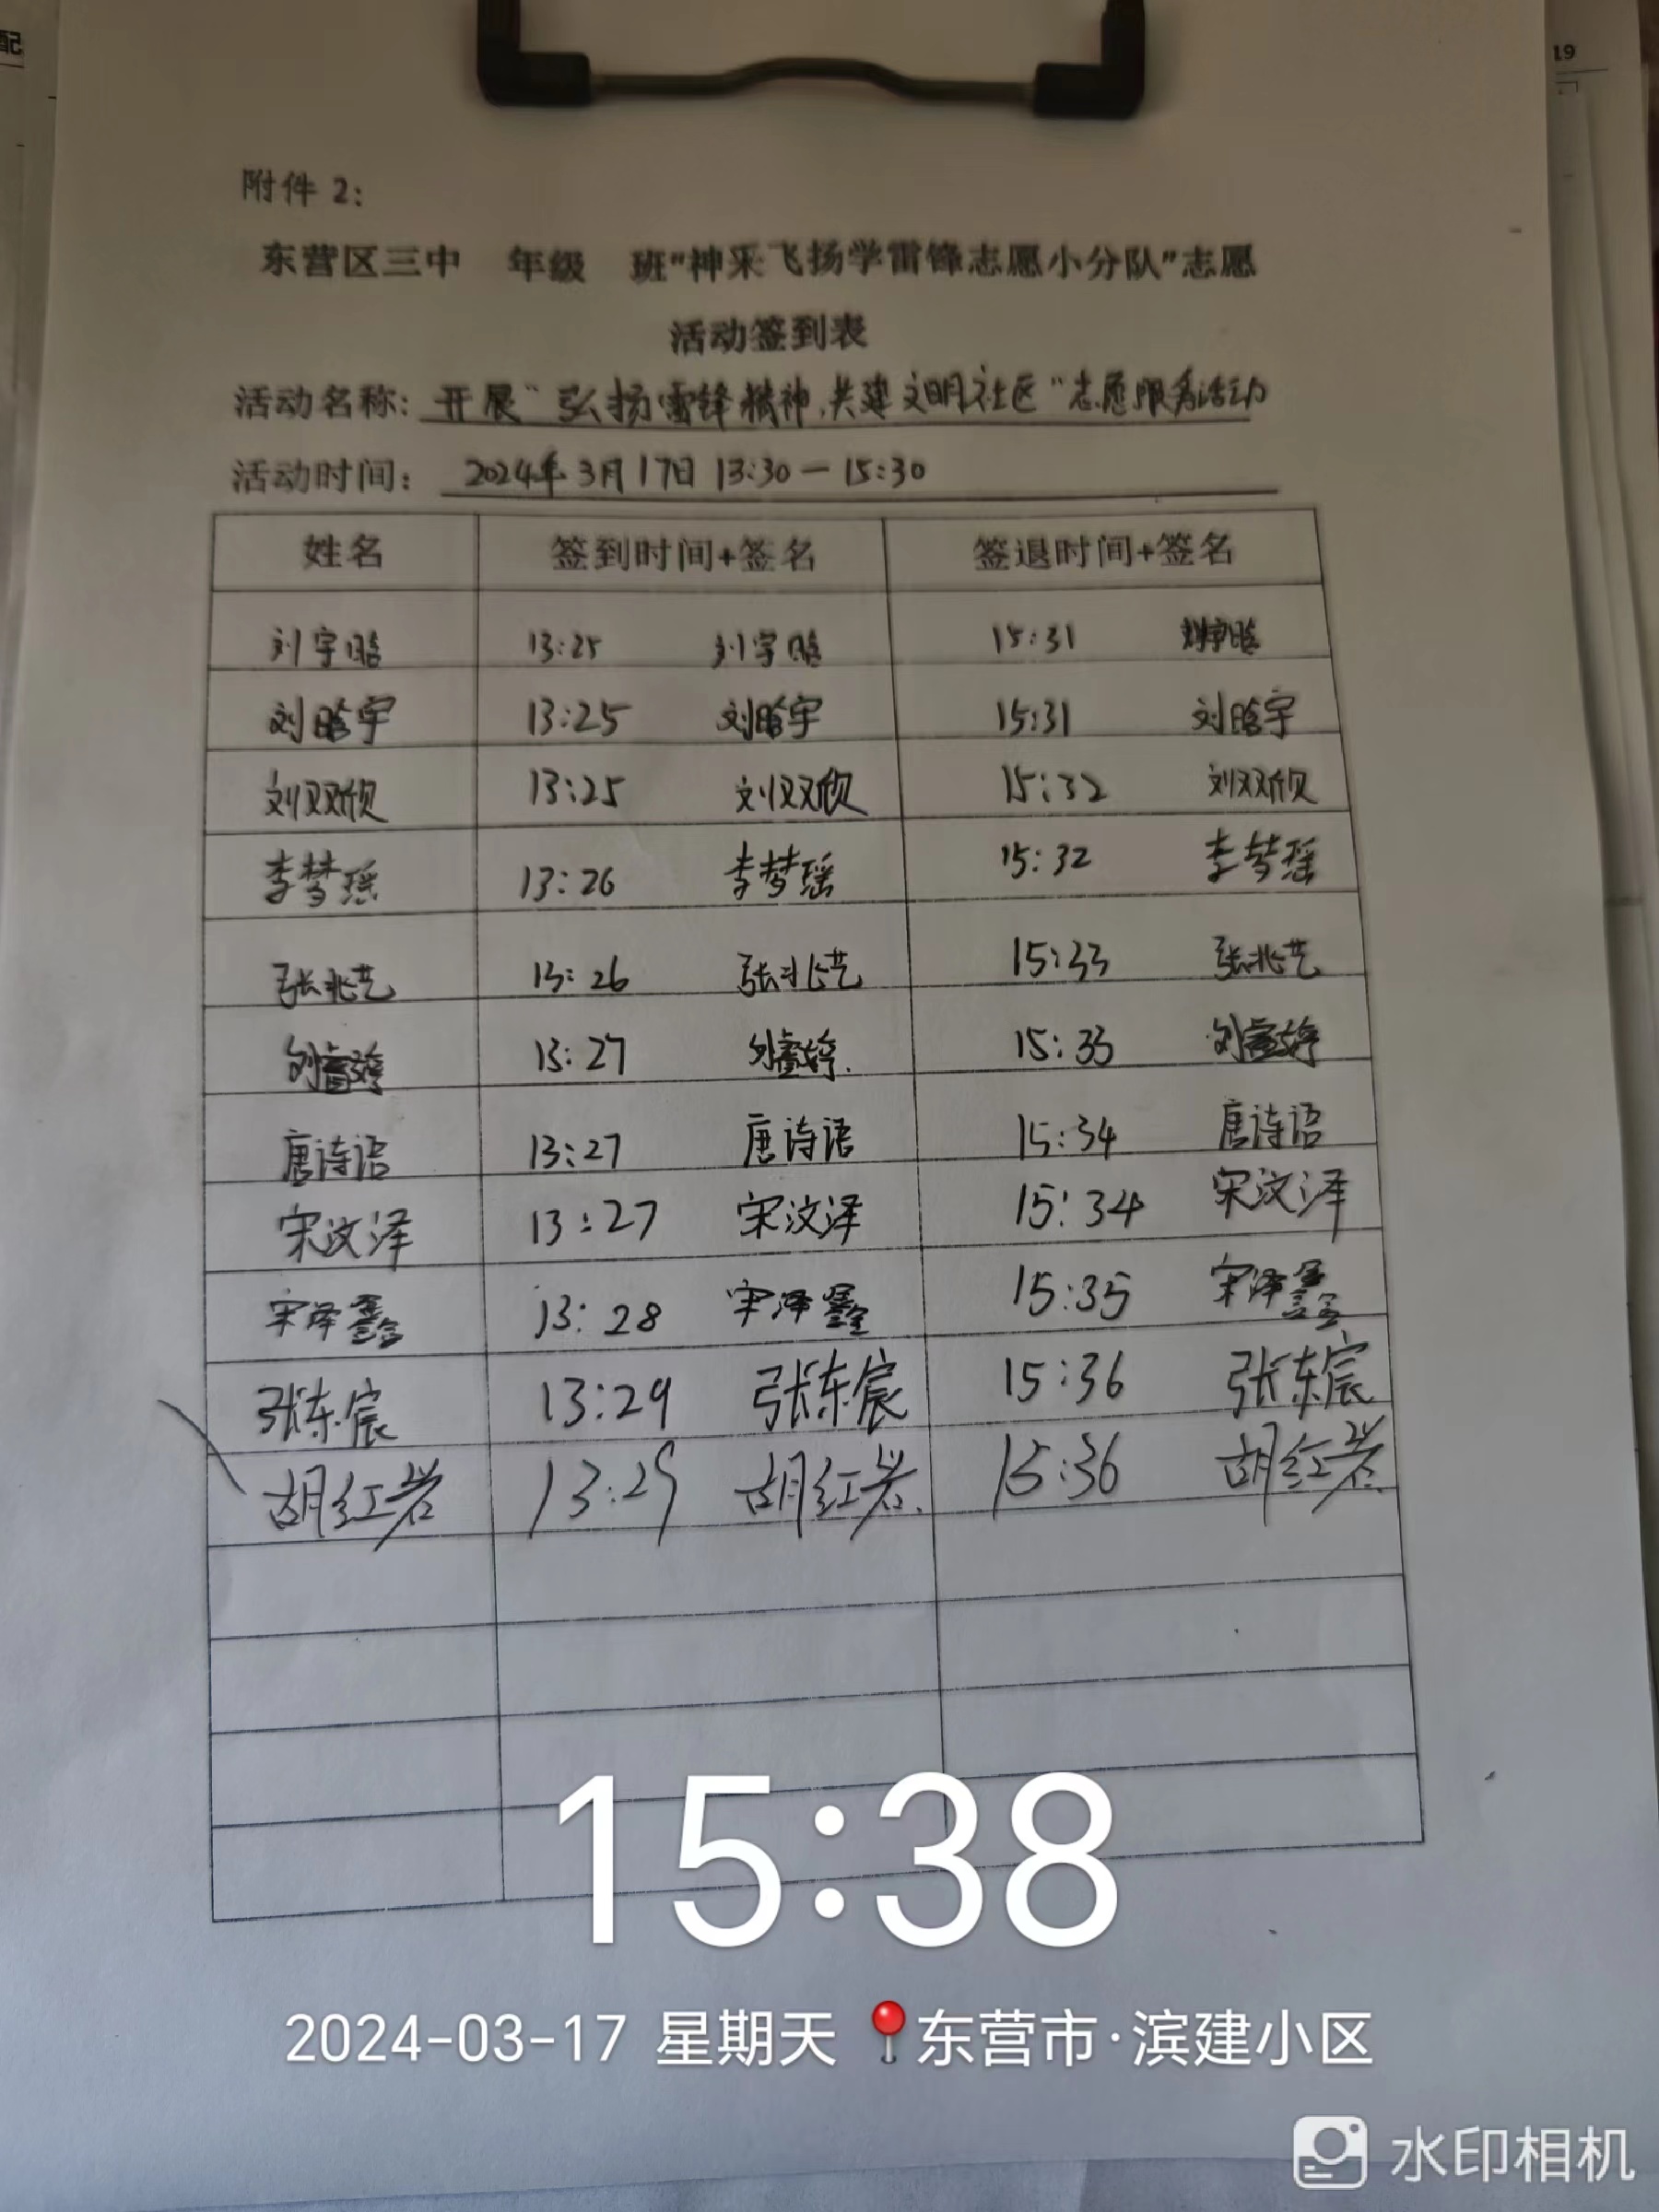 配
19
附件 2:
东营区三中 年级 班"神采飞扬学雷锋志愿小分队"志愿
活动签到表
活动名称: 开展"弘扬雷锋精神,共建文明社区"志愿服务活动
活动时间: 2024年3月17日 13:30—15:30
姓名 签到时间+签名 签退时间+签名
刘宇晗 13:25 刘宇晗 15:31 刘宇晗
刘晗宇 13:25 刘晗宇 15:31 刘晗宇
刘双欣 13:25 刘双欣 15:32 刘双欣
李梦瑶 13:26 李梦瑶 15:32 李梦瑶
张兆艺 13:26 张兆艺 15:33 张兆艺
刘睿婷 13:27 刘睿婷. 15:33 刘睿婷
唐诗语 13:27 唐诗语 15:34 唐诗语
宋汶泽 13:27 宋汶泽 15:34 宋汶泽
宋泽鑫 13:28 宋泽鑫 15:35 宋泽鑫
张东宸 13:29 张东宸 15:36 张东宸
胡红岩 13:29 胡红岩. 15:36 胡红岩.
15:38
2024-03-17 星期天 东营市·滨建小区
水印相机